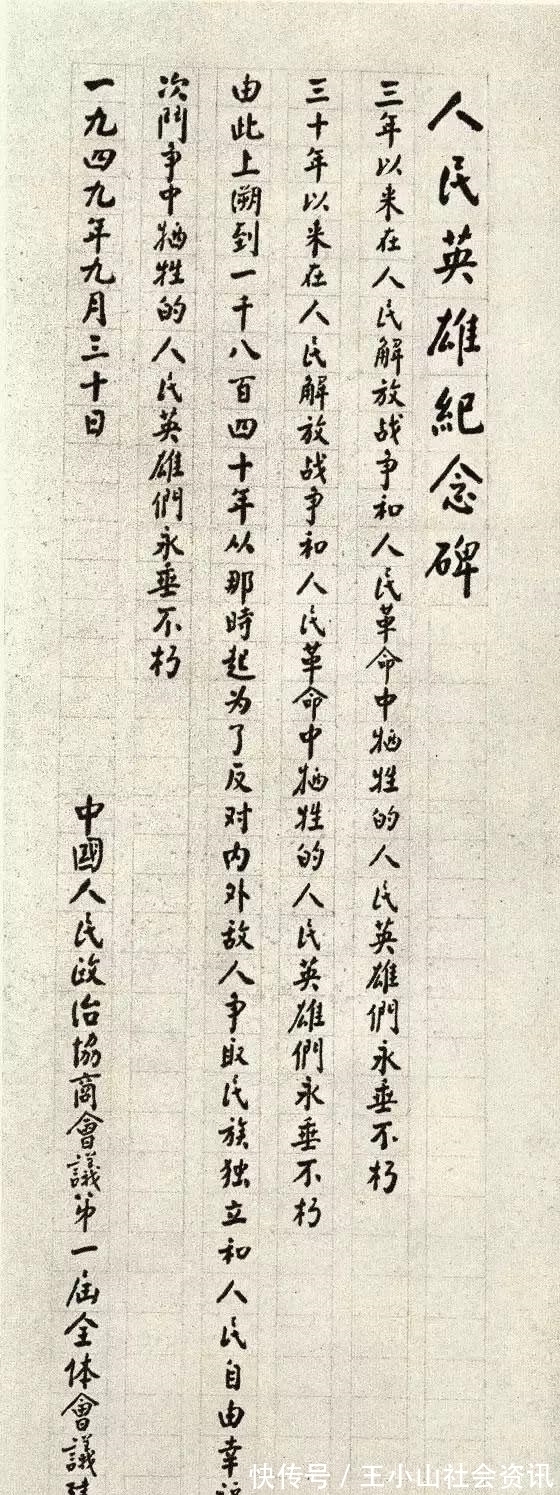 人民英雄紀念碑
三年以来在人民解放战争和人民革命中牺牲的人民英雄們永垂不朽
三十年以来在人民解放战争和人民革命中牺牲的人民英雄們永垂不朽
由此上溯到一千八百四十年从那時起为了反对内外敌人争取民族独立和人民自由幸
次鬥争中牺牲的人民英雄們永垂不朽
一九四九年九月三十日
中國人民政治協商會議第一届全体會議
快传号 / 王小山社会资讯